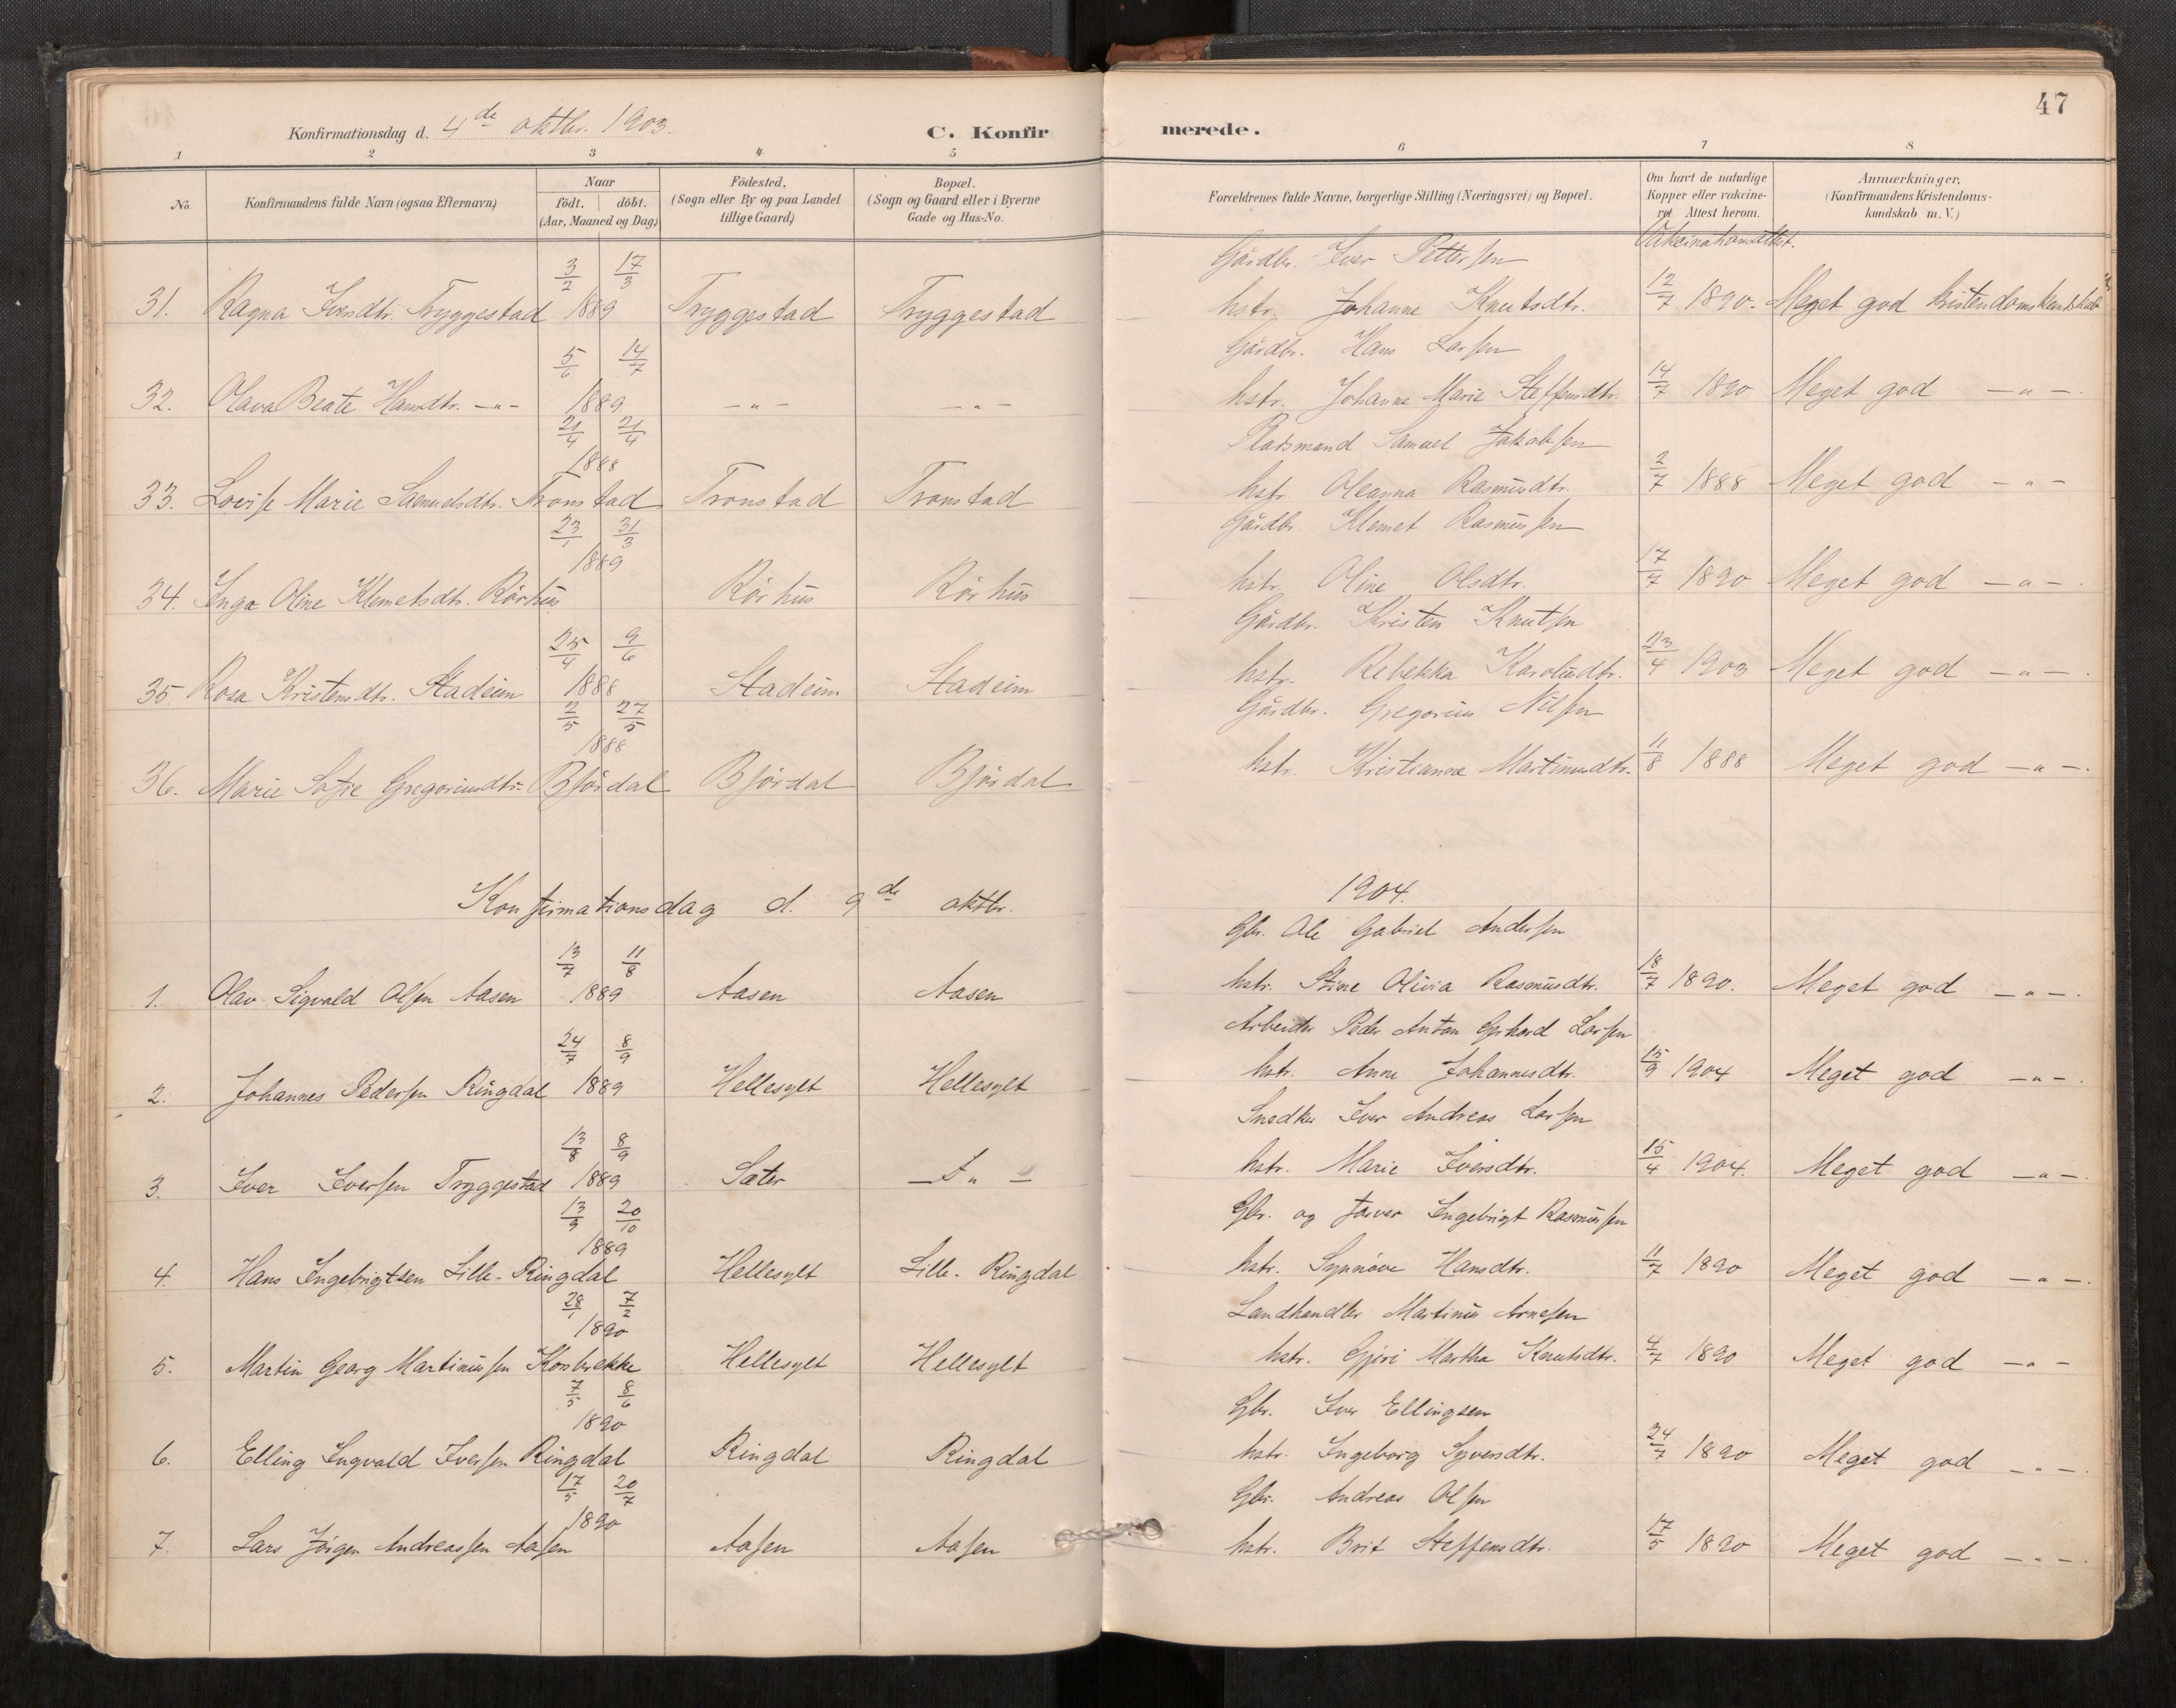 47
Konfirmationsdag d. 4de oktbr. 1903.
C. Konfirmerede.
1 2 3 4 5 6 7 8
No.
Konfirmandens fulde Navn (ogsaa Efternavn)
Naar
födt. döbt.
(Aar, Maaned og Dag)
Födested,
(Sogn eller By og paa Landet
tillige Gaard)
Bopæl.
(Sogn og Gaard eller i Byerne
Gade og Hus-No.
Forældrenes fulde Navne, borgerlige Stilling (Næringsvei) og Bopæl.
Om havt de naturlige
Kopper eller vakcine-
ret. Attest herom.
Anmærkninger,
(Konfirmandens Kristendoms-
kundskab m. V.)
Vakcinationsattest.
3/2 17/3 Gårdbr. Iver Pettersen
31. Ragna Iversdtr. Tryggestad 1889 Tryggestad Tryggestad hstr. Johanne Knutsdtr. 12/7 1890. Meget god kristendomskundskab
5/6 14/7 Gårdbr. Hans Larsen
32. Olava Beate Hansdtr. -"- 1889 -"- -"- hstr. Johanne Marie Steffensdtr. 14/7 1890 Meget god -"-.
21/4 21/4 Pladsmand Samuel Jakobsen
1888
33. Lovise Marie Samuelsdtr. Tronstad Tronstad Tronstad hstr. Oleanna Rasmusdtr. 2/7 1888 Meget god -"-
23/1 31/3 Gårdbr. Klemet Rasmussen
1889
34. Inga Oline Klemetsdtr. Rörhus Rörhus Rörhus hstr. Oline Olsdtr. 17/7 1890 Meget god -"-.
25/4 9/6 Gårdbr. Kristen Knutsen
35. Rosa Kristensdtr. Stadeim 1888 Stadeim Stadeim hstr. Rebekka Karolusdtr. 23/4 1903 Meget god -"-.
2/5 27/5 Gårdbr. Gregorius Nilsen
1888
36. Marie Sofie Gregoriusdtr. Björdal Björdal Björdal hstr. Kristianna Martinusdtr. 11/8 1888 Meget god -"-.
Konfirmationsdag d. 9de oktbr. 1904.
13/7 11/8 Gbr. Ole Gabriel Andersen
1. Olav Sigvald Olsen Aasen 1889 Aasen Aasen hstr. Stine Olivia Rasmusdtr. 18/7 1890. Meget god -"-.
24/7 8/9 Arbeider Peder Anton Gerhard Larsen
2. Johannes Pedersen Ringdal 1889 Hellesylt Hellesylt hstr. Anne Johannesdtr. 15/9 1904 Meget god -"-.
13/8 8/9 Snedker Iver Andreas Larsen
3. Iver Iversen Tryggestad 1889 Sæter -"- hstr. Marie Iversdtr. 15/4 1904. Meget god -"-.
13/9 20/10 Gbr. og farver Ingebrigt Rasmussen
1889
4. Hans Ingebrigtsen Lille-Ringdal Hellesylt Lille-Ringdal hstr. Synnöve Hansdtr. 11/7 1890 Meget god -"-.
28/1 7/2 Landhandler Martinus Arnesen
1890
5. Martin Georg Martinussen Korsbrekke Hellesylt Hellesylt hstr. Gjöri Martha Knutsdtr. 4/7 1890 Meget god -"-
7/5 8/6 Gbr. Iver Ellingsen
1890
6. Elling Ingvald Iversen Ringdal Ringdal Ringdal hstr. Ingeborg Syversdtr. 24/7 1890 Meget god -"-.
17/5 20/7 Gbr. Andreas Olsen
1890
7. Lars Jörgen Andreassen Aasen Aasen Aasen hstr. Brit Steffensdtr. 17/5 1890 Meget god -"-.